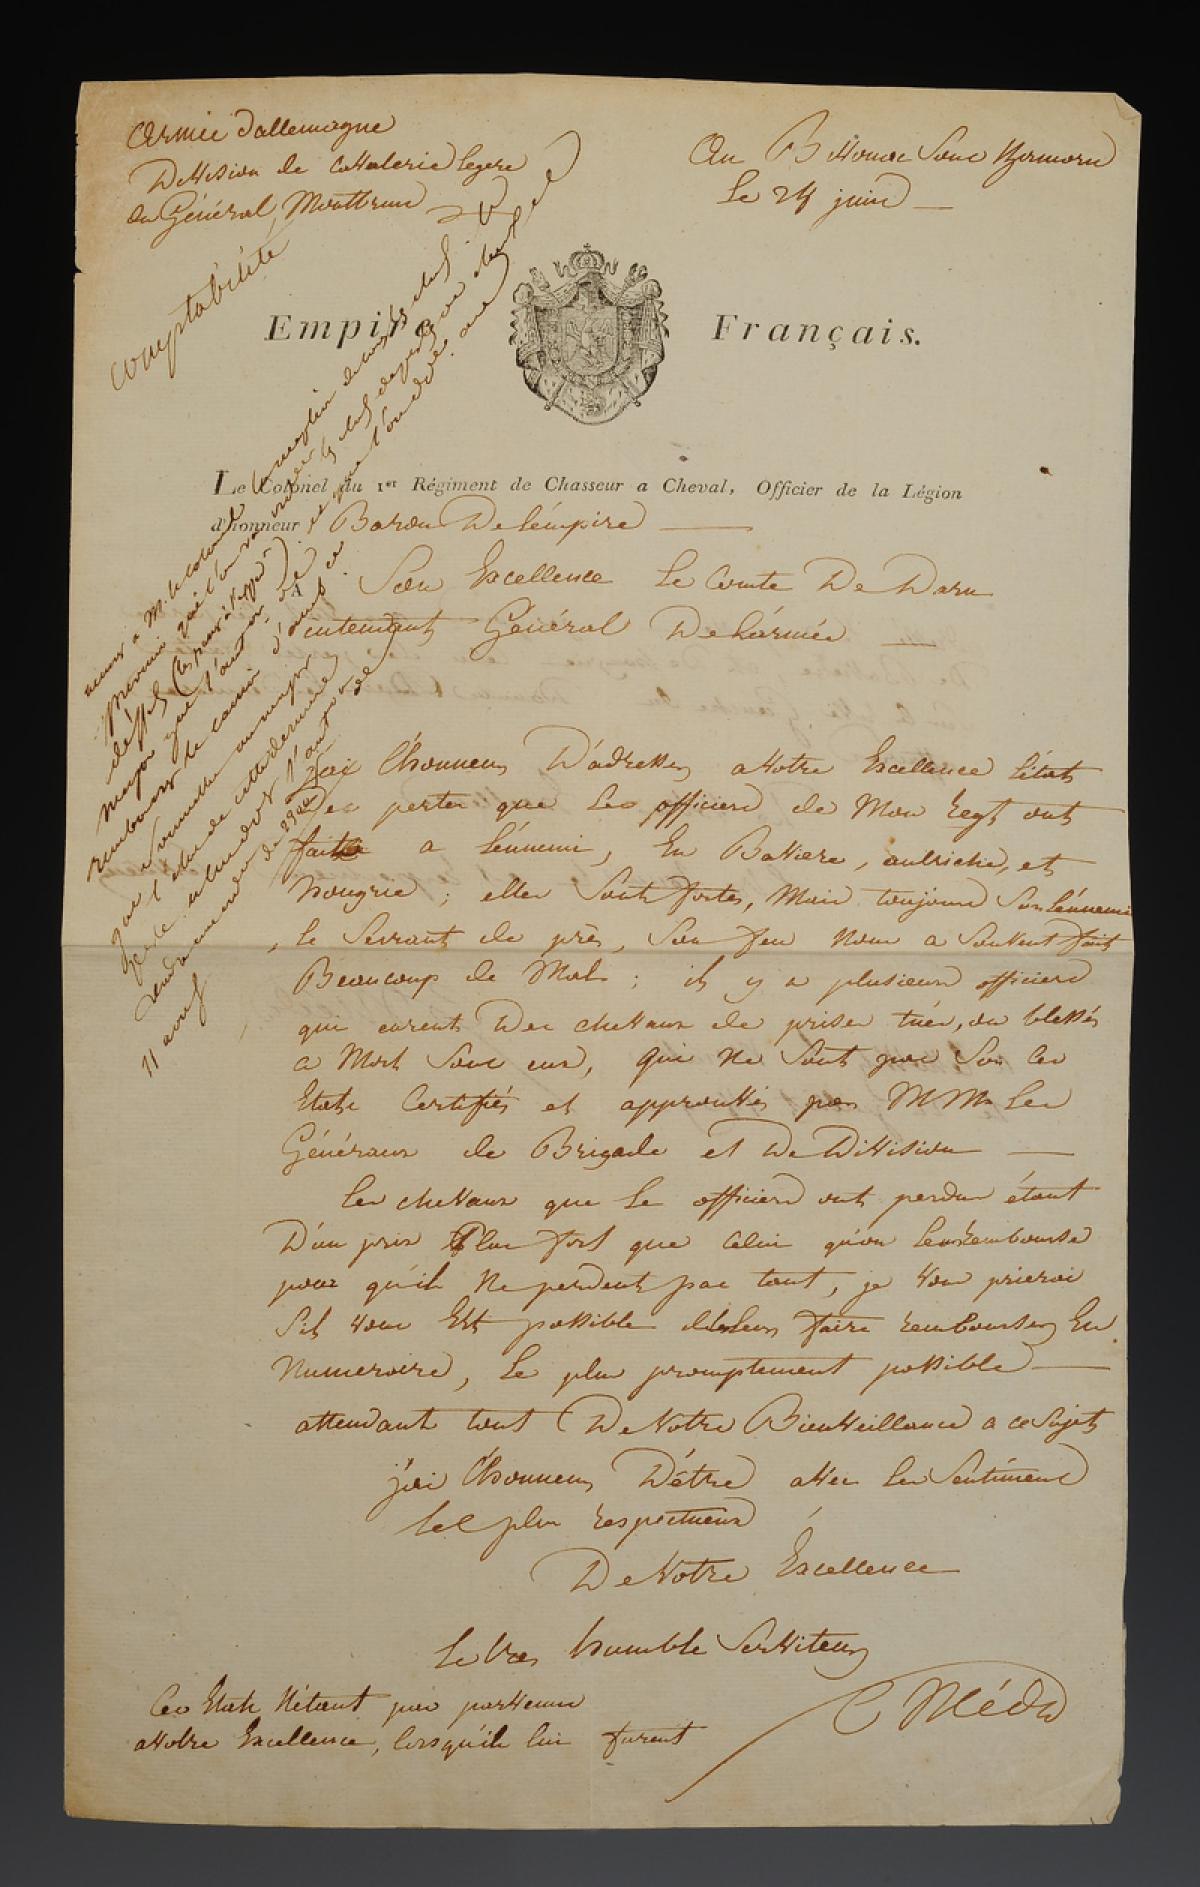 Armée d'allemagne
Division de Cavalerie legere
du Général Montbrun
comptabilité
Au Bivouac Sous
Le 24 juin
Empire Français.
Le Colonel du 1er Régiment de Chasseur a Cheval, Officier de la Légion
d'honneur Baron De L'émpire
A Son Excellence Le Comte De Daru
intendant Général De L'armée
J'ai L'honneur D'adresser a Votre Excellence L'état
Des pertes que Les officiers de Mon Regt ont
faites a L'énnemi, En Baviere, autriche, et
hongrie ; elles Sont fortes, Mais toujours Sur L'énnemi
Le Serrant de près, Son feu Nous a Souvent fait
Beaucoup de Mal ; il y a plusieurs officiers
qui eurent Des chevaux de prises tués, ou blessés
a Mort Sous eux, qui Ne Sont pas Sur Ces
Etats Certifiés et approuvés par MM Les
Généraux de Brigade et De Division
Les chevaux que Le officiers ont perdus étant
D'un prix Plus fort que Celui qu'on Leur rembourse
pour qu'ils Ne perdent pas tout, je Vous prierai
S'il Vous Est possible de Leur faire rembourser En
Numeraire, Le plus promptement possible
attendant tout De Votre Bienveillance a ce Sujet
j'ai L'honneur D'être avec Les Sentimens
Les plus respectueux
De Votre Excellence
Le très humble Serviteur
C Méda
Ces Etats N'étant pas parvenus
a Votre Excellence, lorsqu'ils lui furent
M. le colonel
prévenir qu'il
major que l'autorise
rembourser
11 aout